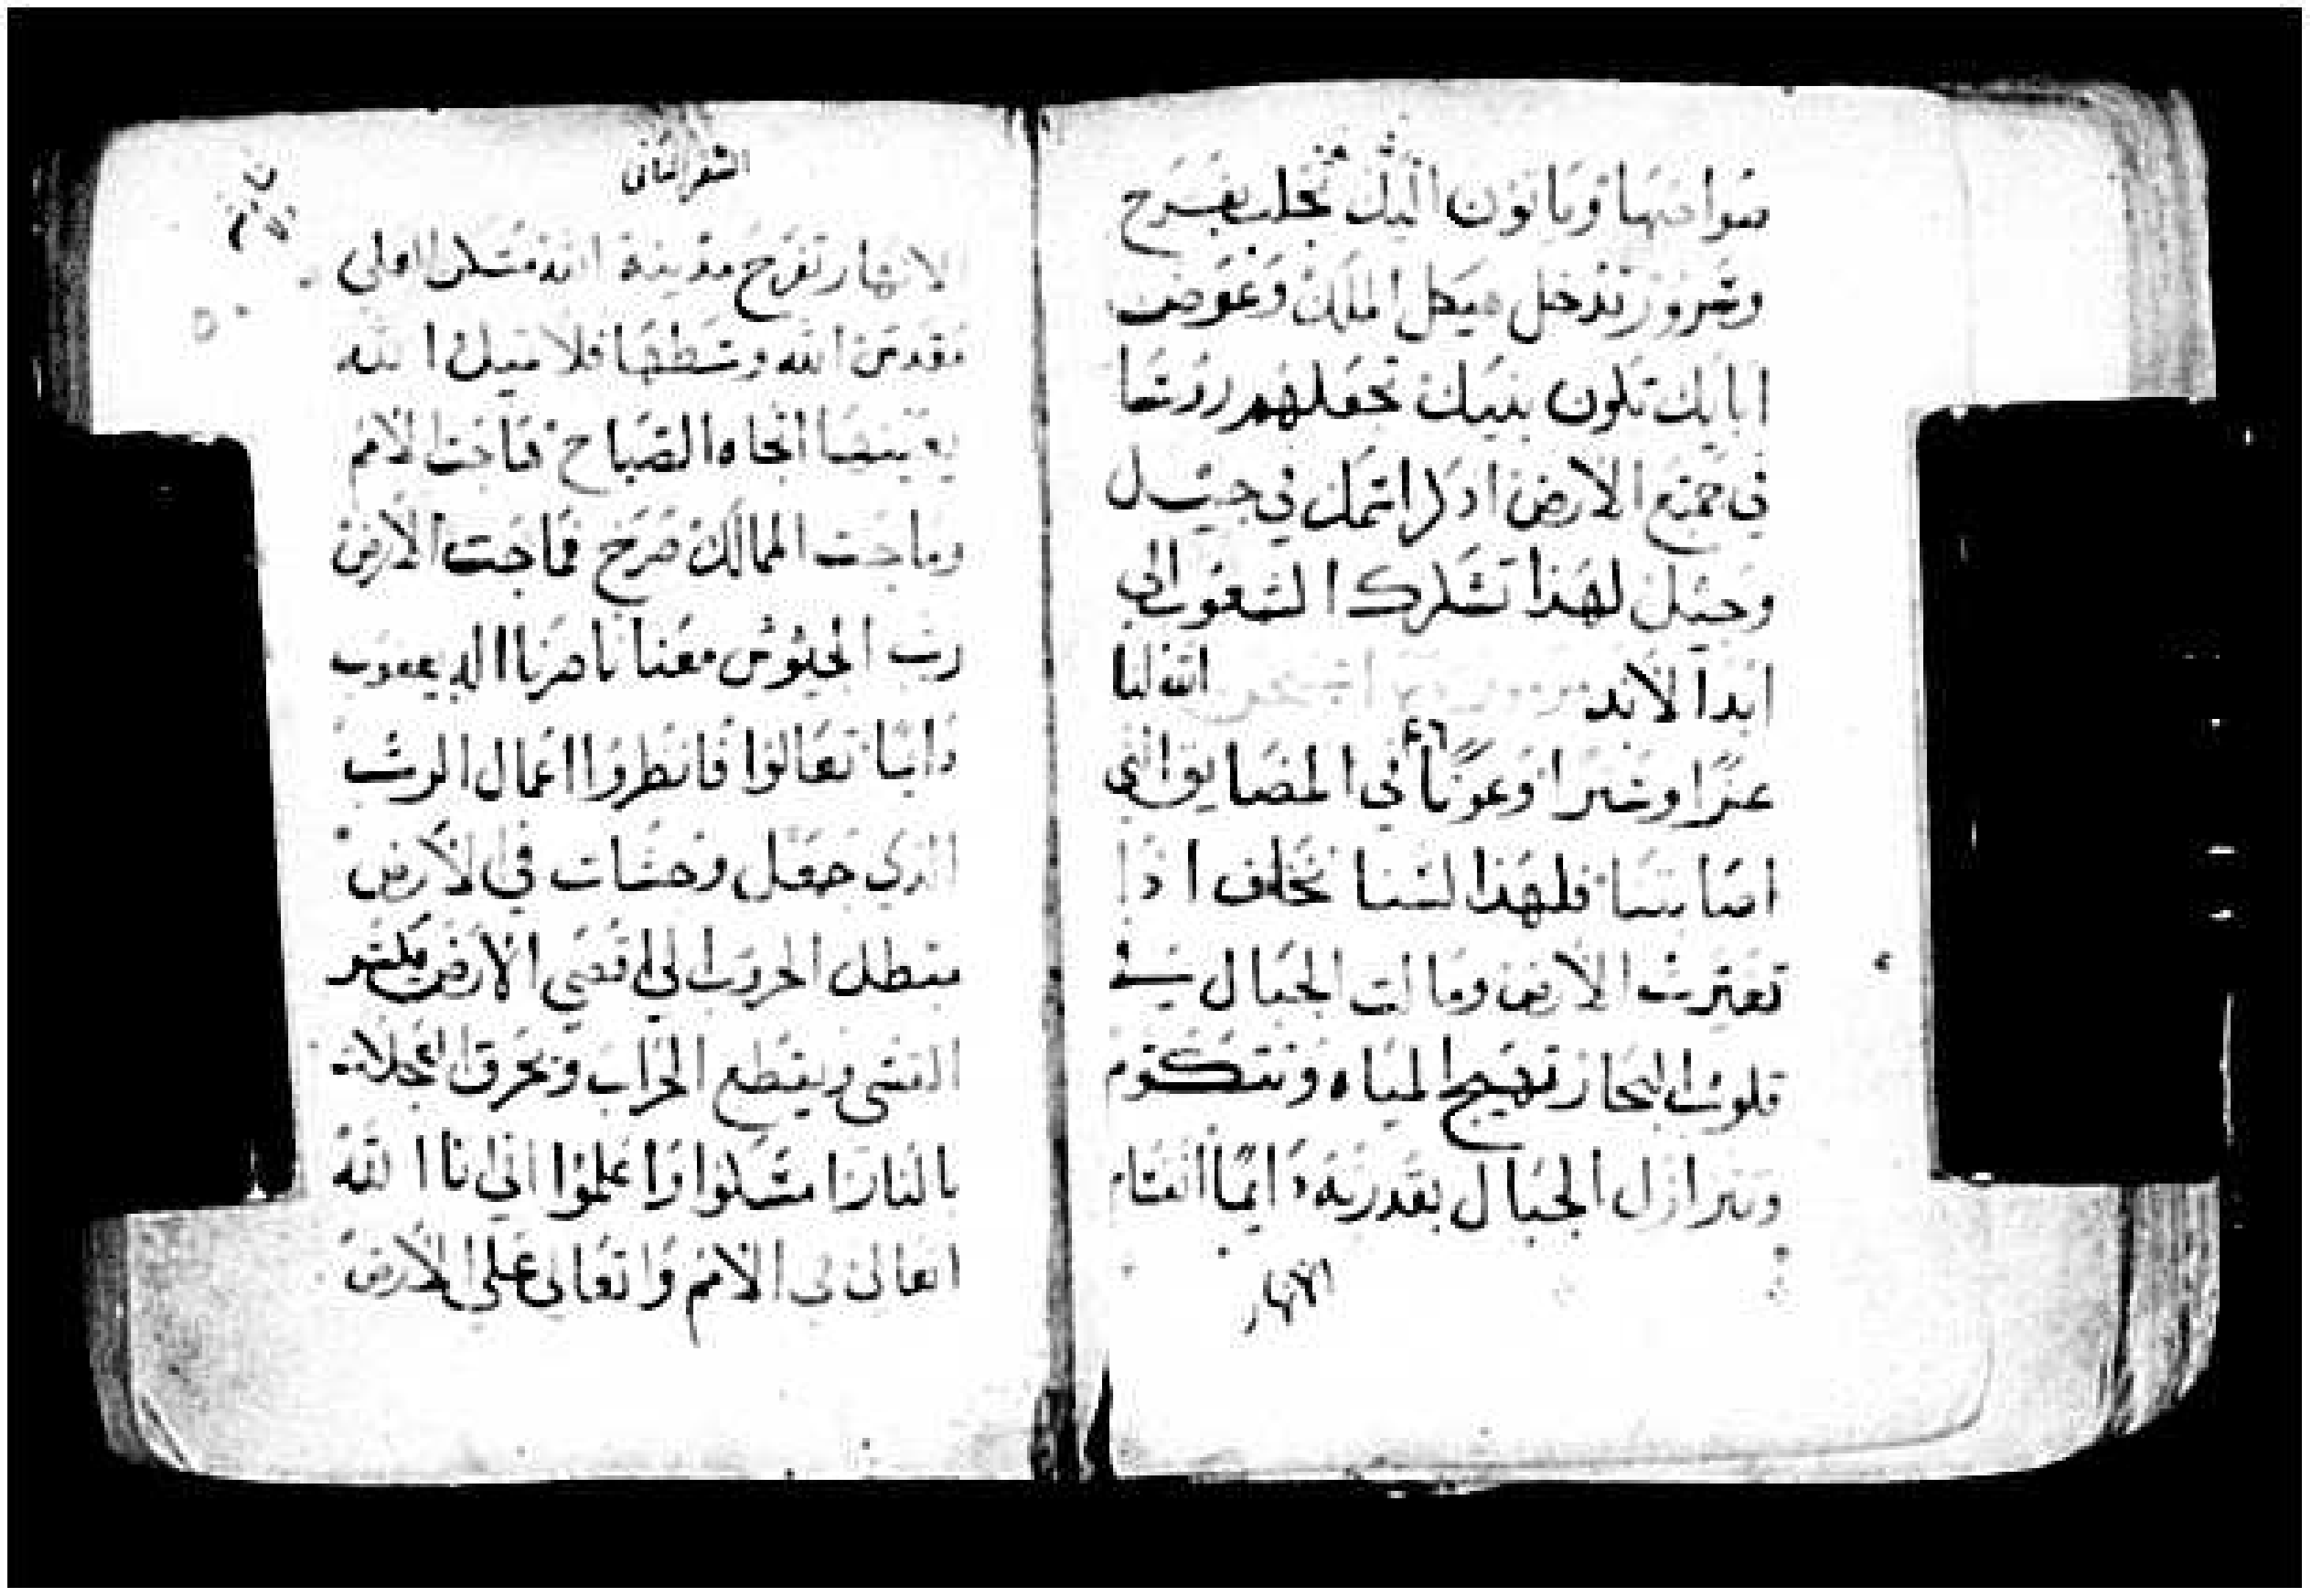 صواحبها وياتون اليك تجلب بفرح
وسرور تدخل هيكل الملك وعوض
ابايك تكون بنيك تجعلهم رووسا
في جميع الارض اذكر اسمك في جيل
وجيل لهذا تشكرك الشعوب الي
ابدا الابد الله لنا
٤٦
عزا وسترا وعونا في المضايق التي
اصابتنا فلهذا لسنا نخاف اذا
تغيرت الارض ومالت الجبال في
قلوب البحار تهيج المياه وتتكوم
وتتزلزل الجبال بقدرته دايما
الانهار
السفر الثاني
الانهار تفرح مدينة الله مسكن العلي
مقدس الله وسطها فلا ميل الله
يعينها اتجاه الصباح ماجت الامم
وماجت الممالك صرخ فماجت الارض
رب الجيوش معنا ناصرنا اله يعقوب
دايما تعالوا فانظروا اعمال الرب
الذي جعل وحشات في الارض
مبطل الحروب الي اقصي الارض يكسر
القسي ويقطع الحراب ويحرق العجلات
بالنار امسكوا واعلموا اني انا الله
اتعالي في الامم واتعالي علي الارض